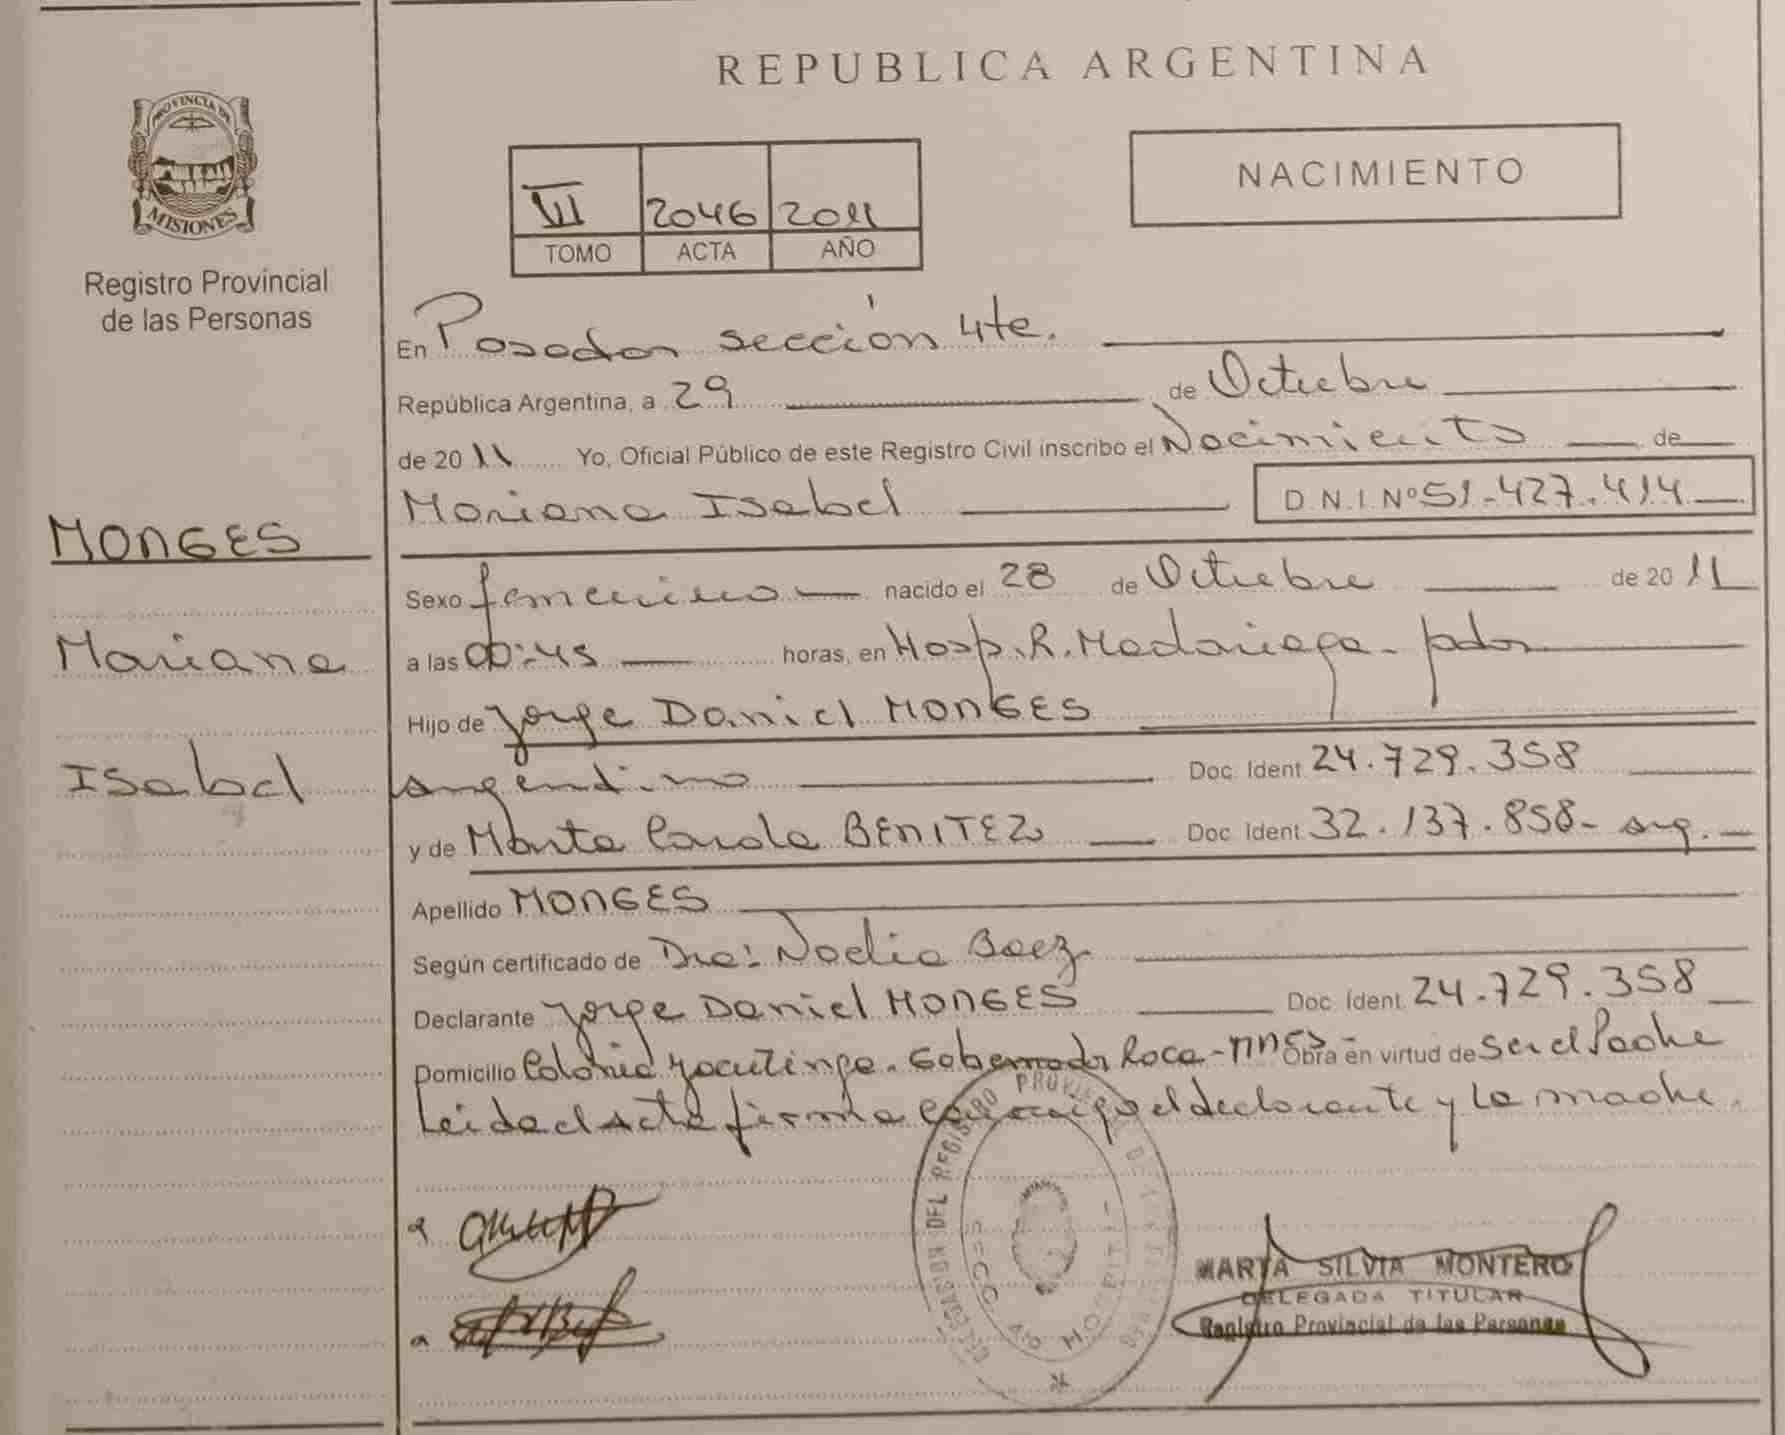 REPUBLICA ARGENTINA
PROVINCIA DE
MISIONES
Registro Provincial
de las Personas
NACIMIENTO
VII 2046 2011
TOMO ACTA AÑO
En Posadas sección 4te.
República Argentina, a 29 de Octubre
de 2011 Yo, Oficial Público de este Registro Civil inscribo el Nacimiento de
Mariana Isabel D.N.I. Nº 51.427.414
MONGES
Mariana
Isabel
Sexo femenino nacido el 28 de Octubre de 2011
a las 00:45 horas, en Hosp. R. Madariaga - pdas
Hijo de Jorge Daniel MONGES
argentino Doc. Ident 24.729.358
y de Marta Carola BENITEZ Doc. Ident 32.137.858- arg.
Apellido MONGES
Según certificado de Dra: Noelia Baez
Declarante Jorge Daniel MONGES Doc. Ident. 24.729.358
Domicilio Colonia Yacutinga. Gobernador Roca - Mnes Obra en virtud de ser el Padre
Leída el Acta firma conmigo el declarante y la madre.
DELEGACION DEL REGISTRO PROVINCIAL DE LAS PERSONAS
SECC. 4a HOSPITAL
MARTA SILVIA MONTERO
DELEGADA TITULAR
Registro Provincial de las Personas